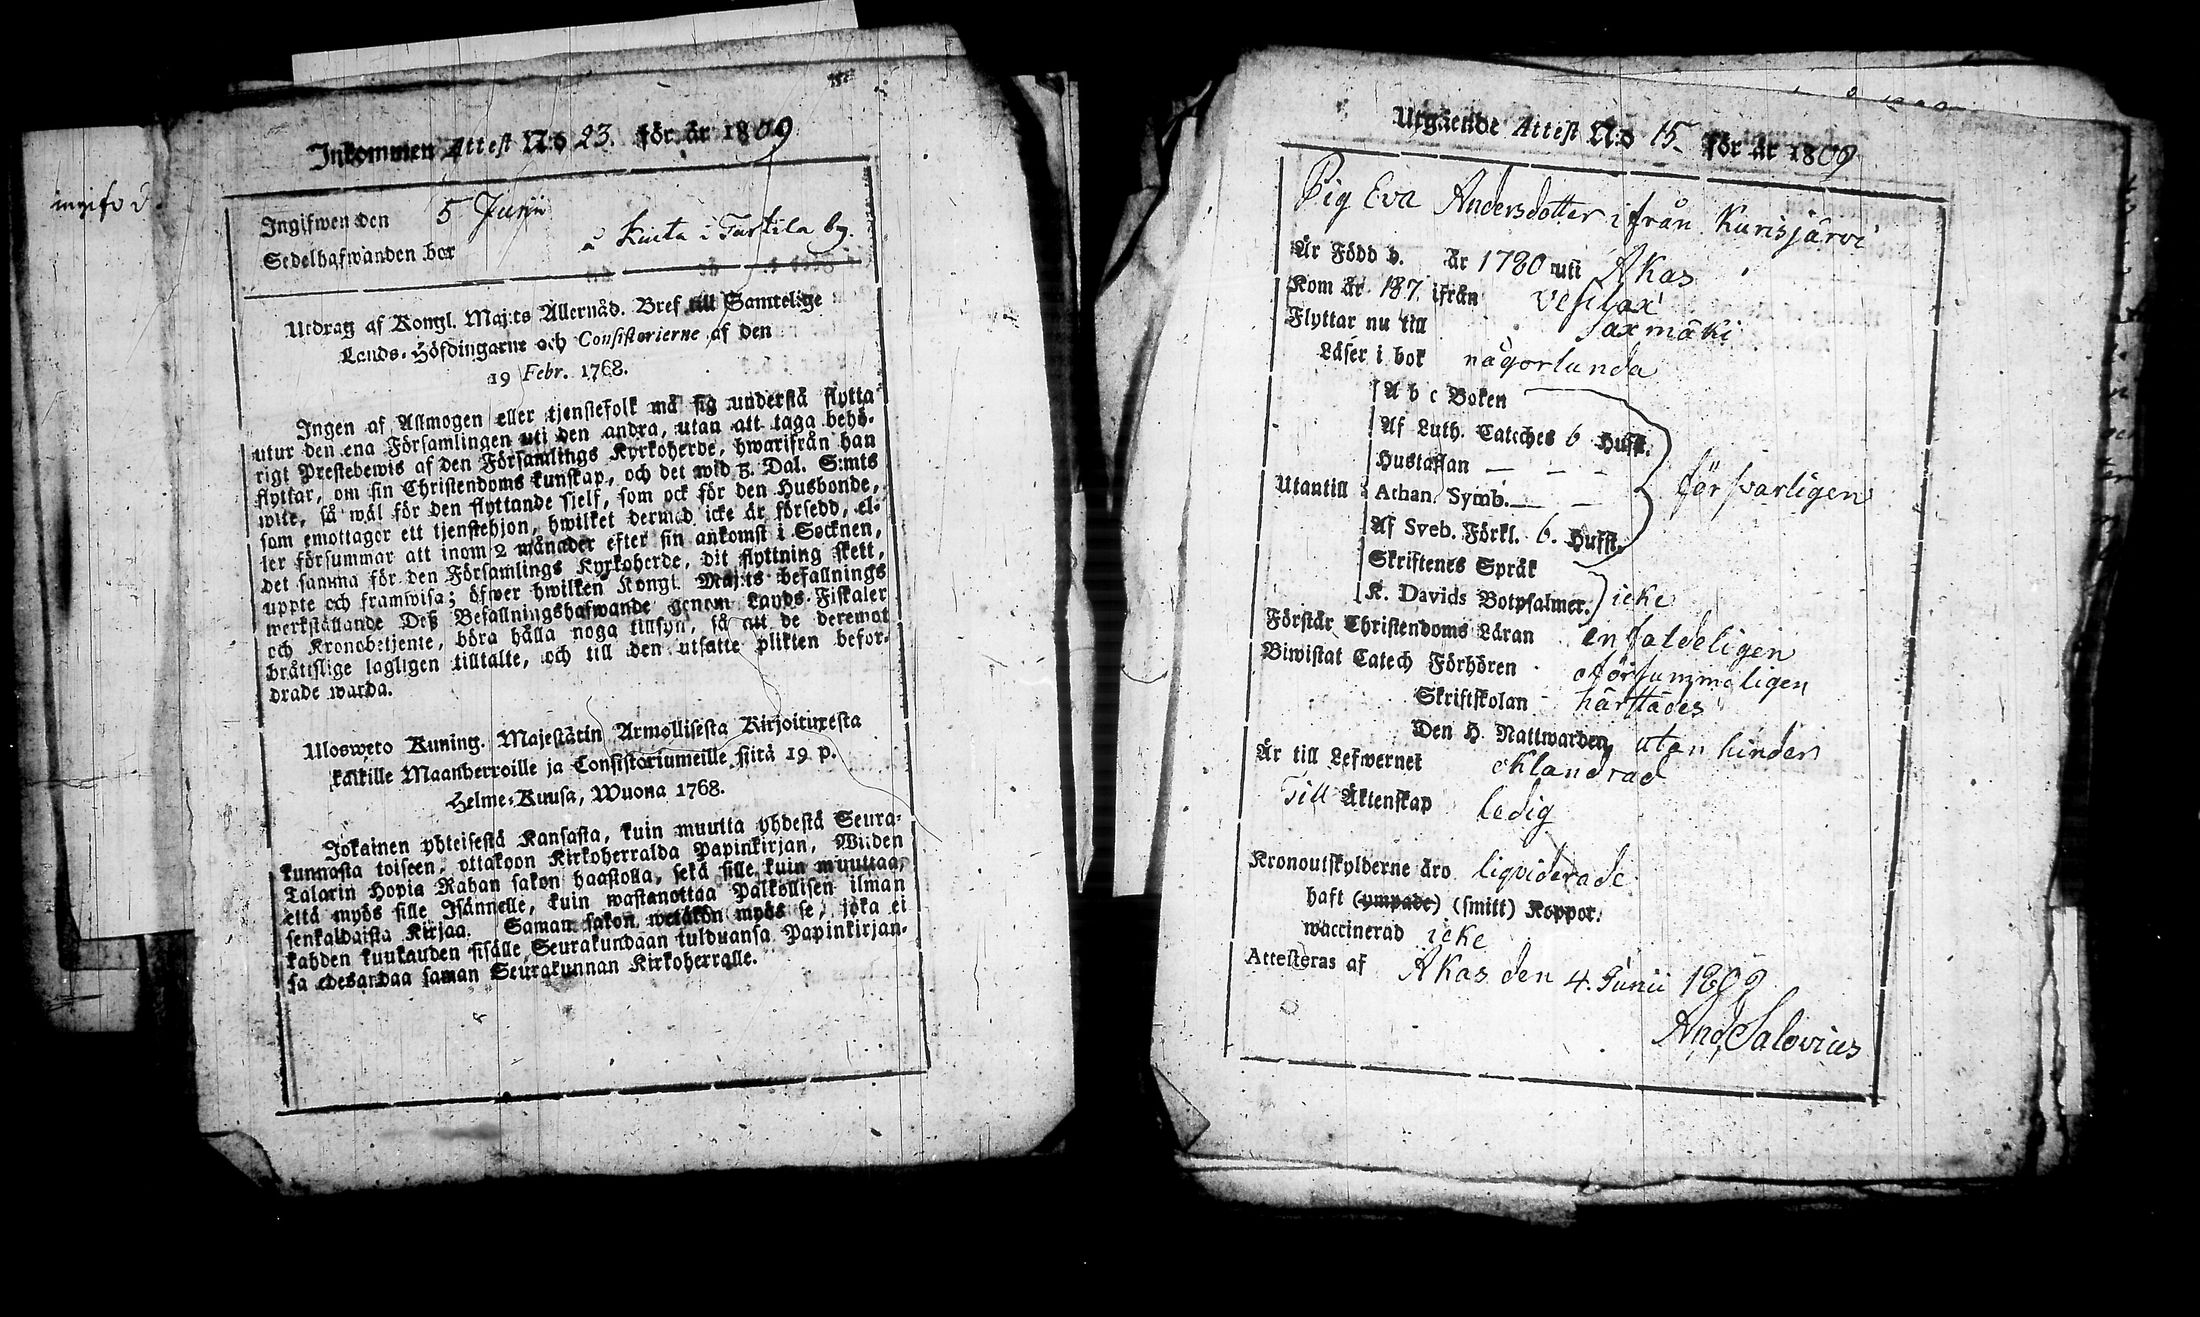 Inkommen Attest N:o 23. för år 1809
Ingifwen den 5 Junii
Sedelhafwanden bor å Kinta i Tarkila by.
Utdrag af Kongl. Maj:ts Allernåd. Bref till Samtelige
Lands-Höfdingarne och Consistorierne af den
19 Febr. 1768.
Ingen af Allmogen eller tjenstefolk må sig understå flytta
utur den ena Församlingen uti den andra, utan att taga behö-
rigt Prestebewis af den Församlings Kyrkoherde, hwarifrån han
flyttar, om sin Christendoms kunskap, och det wid 3. Dal. S:mts
wite, så wäl för den flyttande sjelf, som ock för den Husbonde,
som emottager ett tjenstehjon, hwilket dermed icke är försedd, el-
ler försummar att inom 2 månader efter sin ankomst i Socknen,
det samma för den Församlings Kyrkoherde, dit flyttning skett,
uppte och framwisa; öfwer hwilken Kongl. Maj:ts befallnings
werkställande Deß Befallningshafwande genom Lands-Fiskaler
och Kronobetjente, böra hålla noga tillsyn, så att de deremot
bråttslige lagligen tilltalte, och till den utsatte plikten befor-
drade warda.
Ulosweto Kuning. Majestätin Armollisesta Kirjoituxesta
kaikille Maanherroille ja Consistoriumeille, siitä 19 p.
Helme-Kuusa, Wuona 1768.
Jokainen yhteisestä Kansasta, kuin muutta yhdestä Seura-
kunnasta toiseen, ottakoon Kirkoherralda Papinkirjan, Wiiden
Talarin Hopia Rahan sakon haastolla, sekä sille kuin muuttaa,
että myös sille Isännelle, kuin wastanottaa Palkollisen ilman
senkaldaista Kirjaa. Saman sakon wetäkön myös se, joka ei
kahden kuukauden sisälle Seurakundaan tulduansa Papinkirjan-
sa edesandaa saman Seurakunnan Kirkoherralle.
Utgående Attest N:o 15 för år 1809
Pig Eva Andersdotter ifrån Kurisjärvi
Är Född d. År 1780 uti Akas
Kom År 187 ifrån Vesilax
Flyttar nu till Saxmäki
Läser i bok någorlunda
A b c Boken
Af Luth. Catches 6 Hufst.
Hustaflan — — —
Utantill Athan. Symb. — — försvarligen
Af Sveb. Förkl. 6. Hufst.
Skriftenes Språk
K. Davids Botpsalmer. icke
Förstår Christendoms Läran enfaldeligen
Biwistat Catech Förhören oförsummeligen
Skriftskolan härstädes
Den H. Nattwarden, utan hinder
Är till Lefwernet oklandrad
Till Äktenskap ledig
Kronoutskylderne äro liqviderade
haft (ympade) (smitt) Koppor.
waccinerad icke
Attesteras af Akas den 4. Junii 1809
And. Salovius